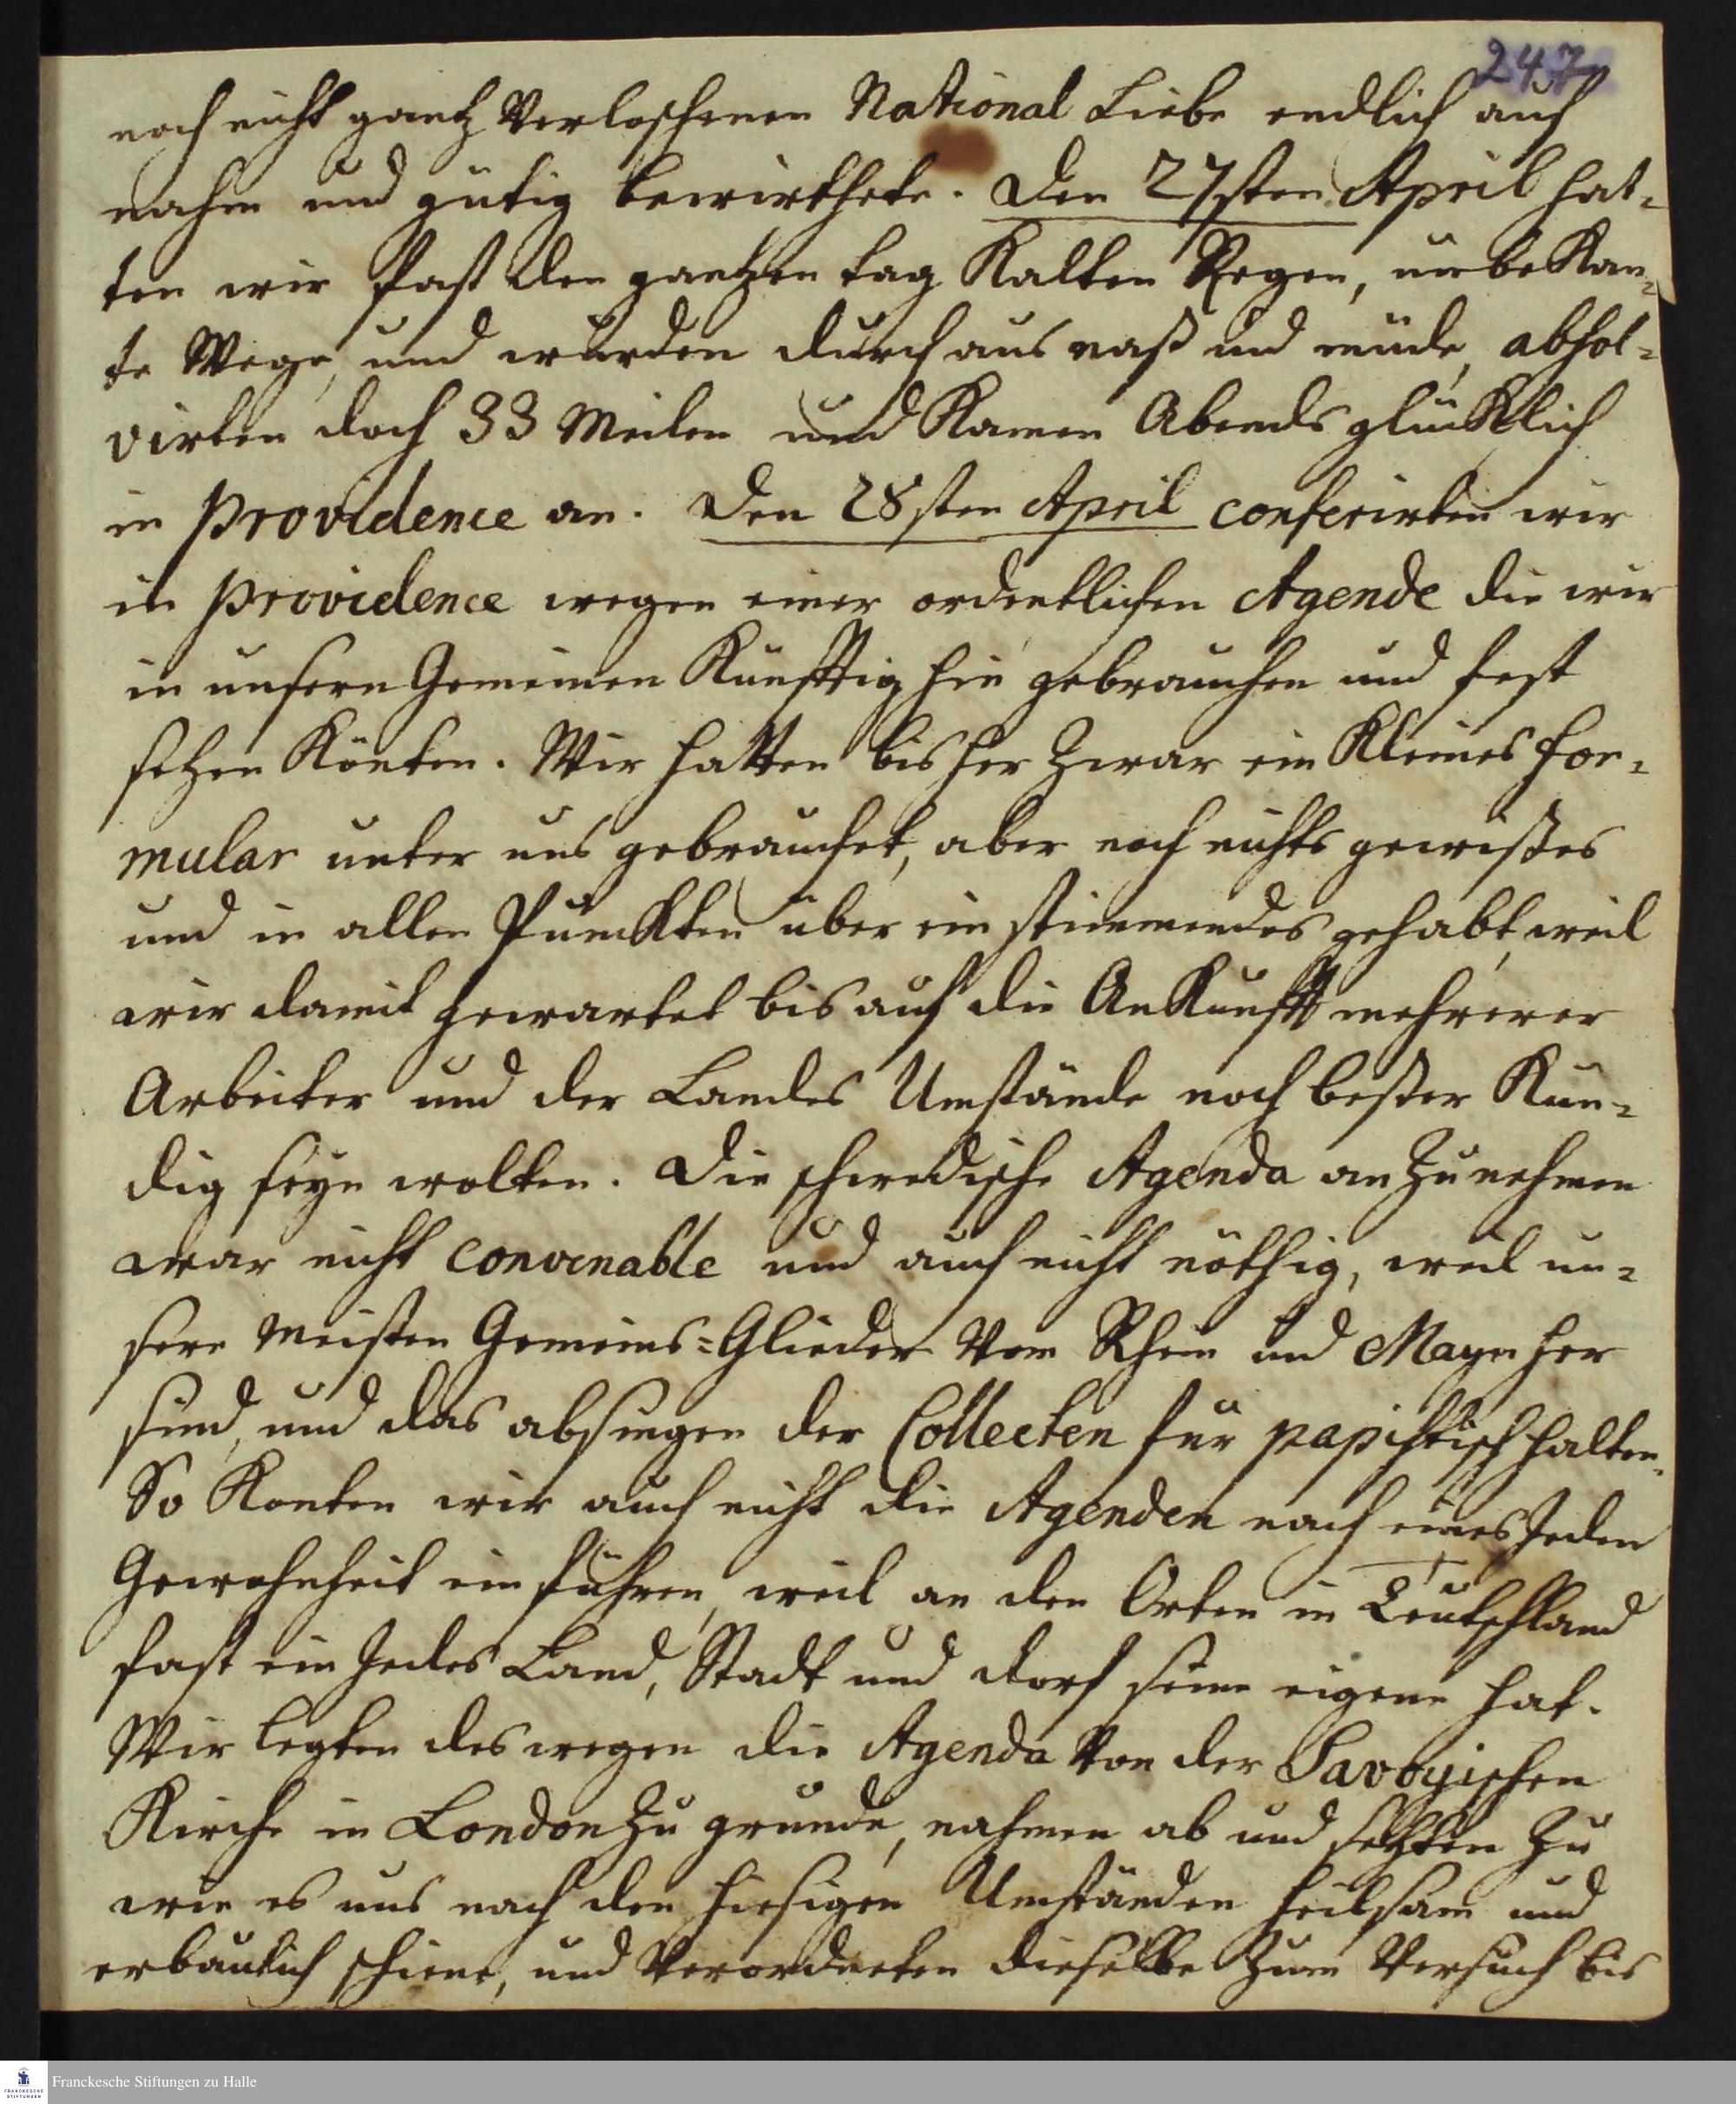 247
noch nicht gantz Verloschenen National Liebe endlich auf
nahm und gütig bewirthete. Den 27sten April hat-
ten wir fast den gantzen tag Kalten Regen, unbeKan-
te Wege, und wurden durchaus naß und müde, absol-
virten doch 33 Meilen und Kamen Abends glücklich
in Providence an. Den 28sten April conferirten wir
in Providence wegen einer ordentlichen Agende die wir
in unsern Gemeinen Künfftig hin gebrauchen und fest
setzen Könten. Wir hatten bisher Zwar ein Kleines For-
mular unter uns gebrauchet, aber noch nichts gewißes
und in allen Punckten über ein stimmendes gehabt, weil
wir damit gewartet bis auf die AnKunfft mehrerer
Arbeiter und der Landes Umstände noch beßer Kün-
dig seyn wolten. Die schwedische Agenda anZunehmen
war nicht convenable und auch nicht nöthig, weil un-
sere meisten Gemeins-Glieder Vom Rhein und Mayn her
sind, und das absingen der Collecten für papistisch halten.
So Konten wir auch nicht die Agenden nach eines Jeden
Gewohnheit einführen, weil an den Orten in Teutschland
fast ein Jedes Land, Stadt und dorf seine eigene hat.
Wir legten deswegen die Agenda Von der Savoyischen
Kirche in London Zu grunde, nahmen ab und setzten Zu
wie es uns nach den hiesigen Umständen heilsam und
erbaulich schiene, und Verordneten dieselbe Zum Versuch bis
FRANCKESCHE
STIFTUNGEN
Franckesche Stiftungen zu Halle